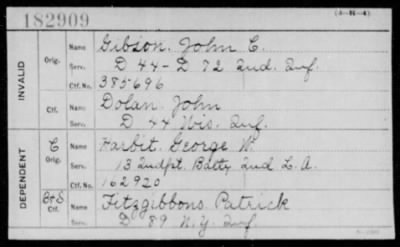 182909
(A-H-4)
INVALID
Orig. Name Gibson, John C.
Serv. D 44 - D 72 Ind. Inf.
Ctf. No. 385696
Ctf. Name Dolan John
Serv. D 44 Wis. Inf.
DEPENDENT
C Orig. Name Harbit, George W.
Serv. 13 Indpt. Batty Ind L. A.
Ctf. No. 162920
Ctf. Name Fitzgibbons, Patrick
Serv. D 89 N.Y. Inf.